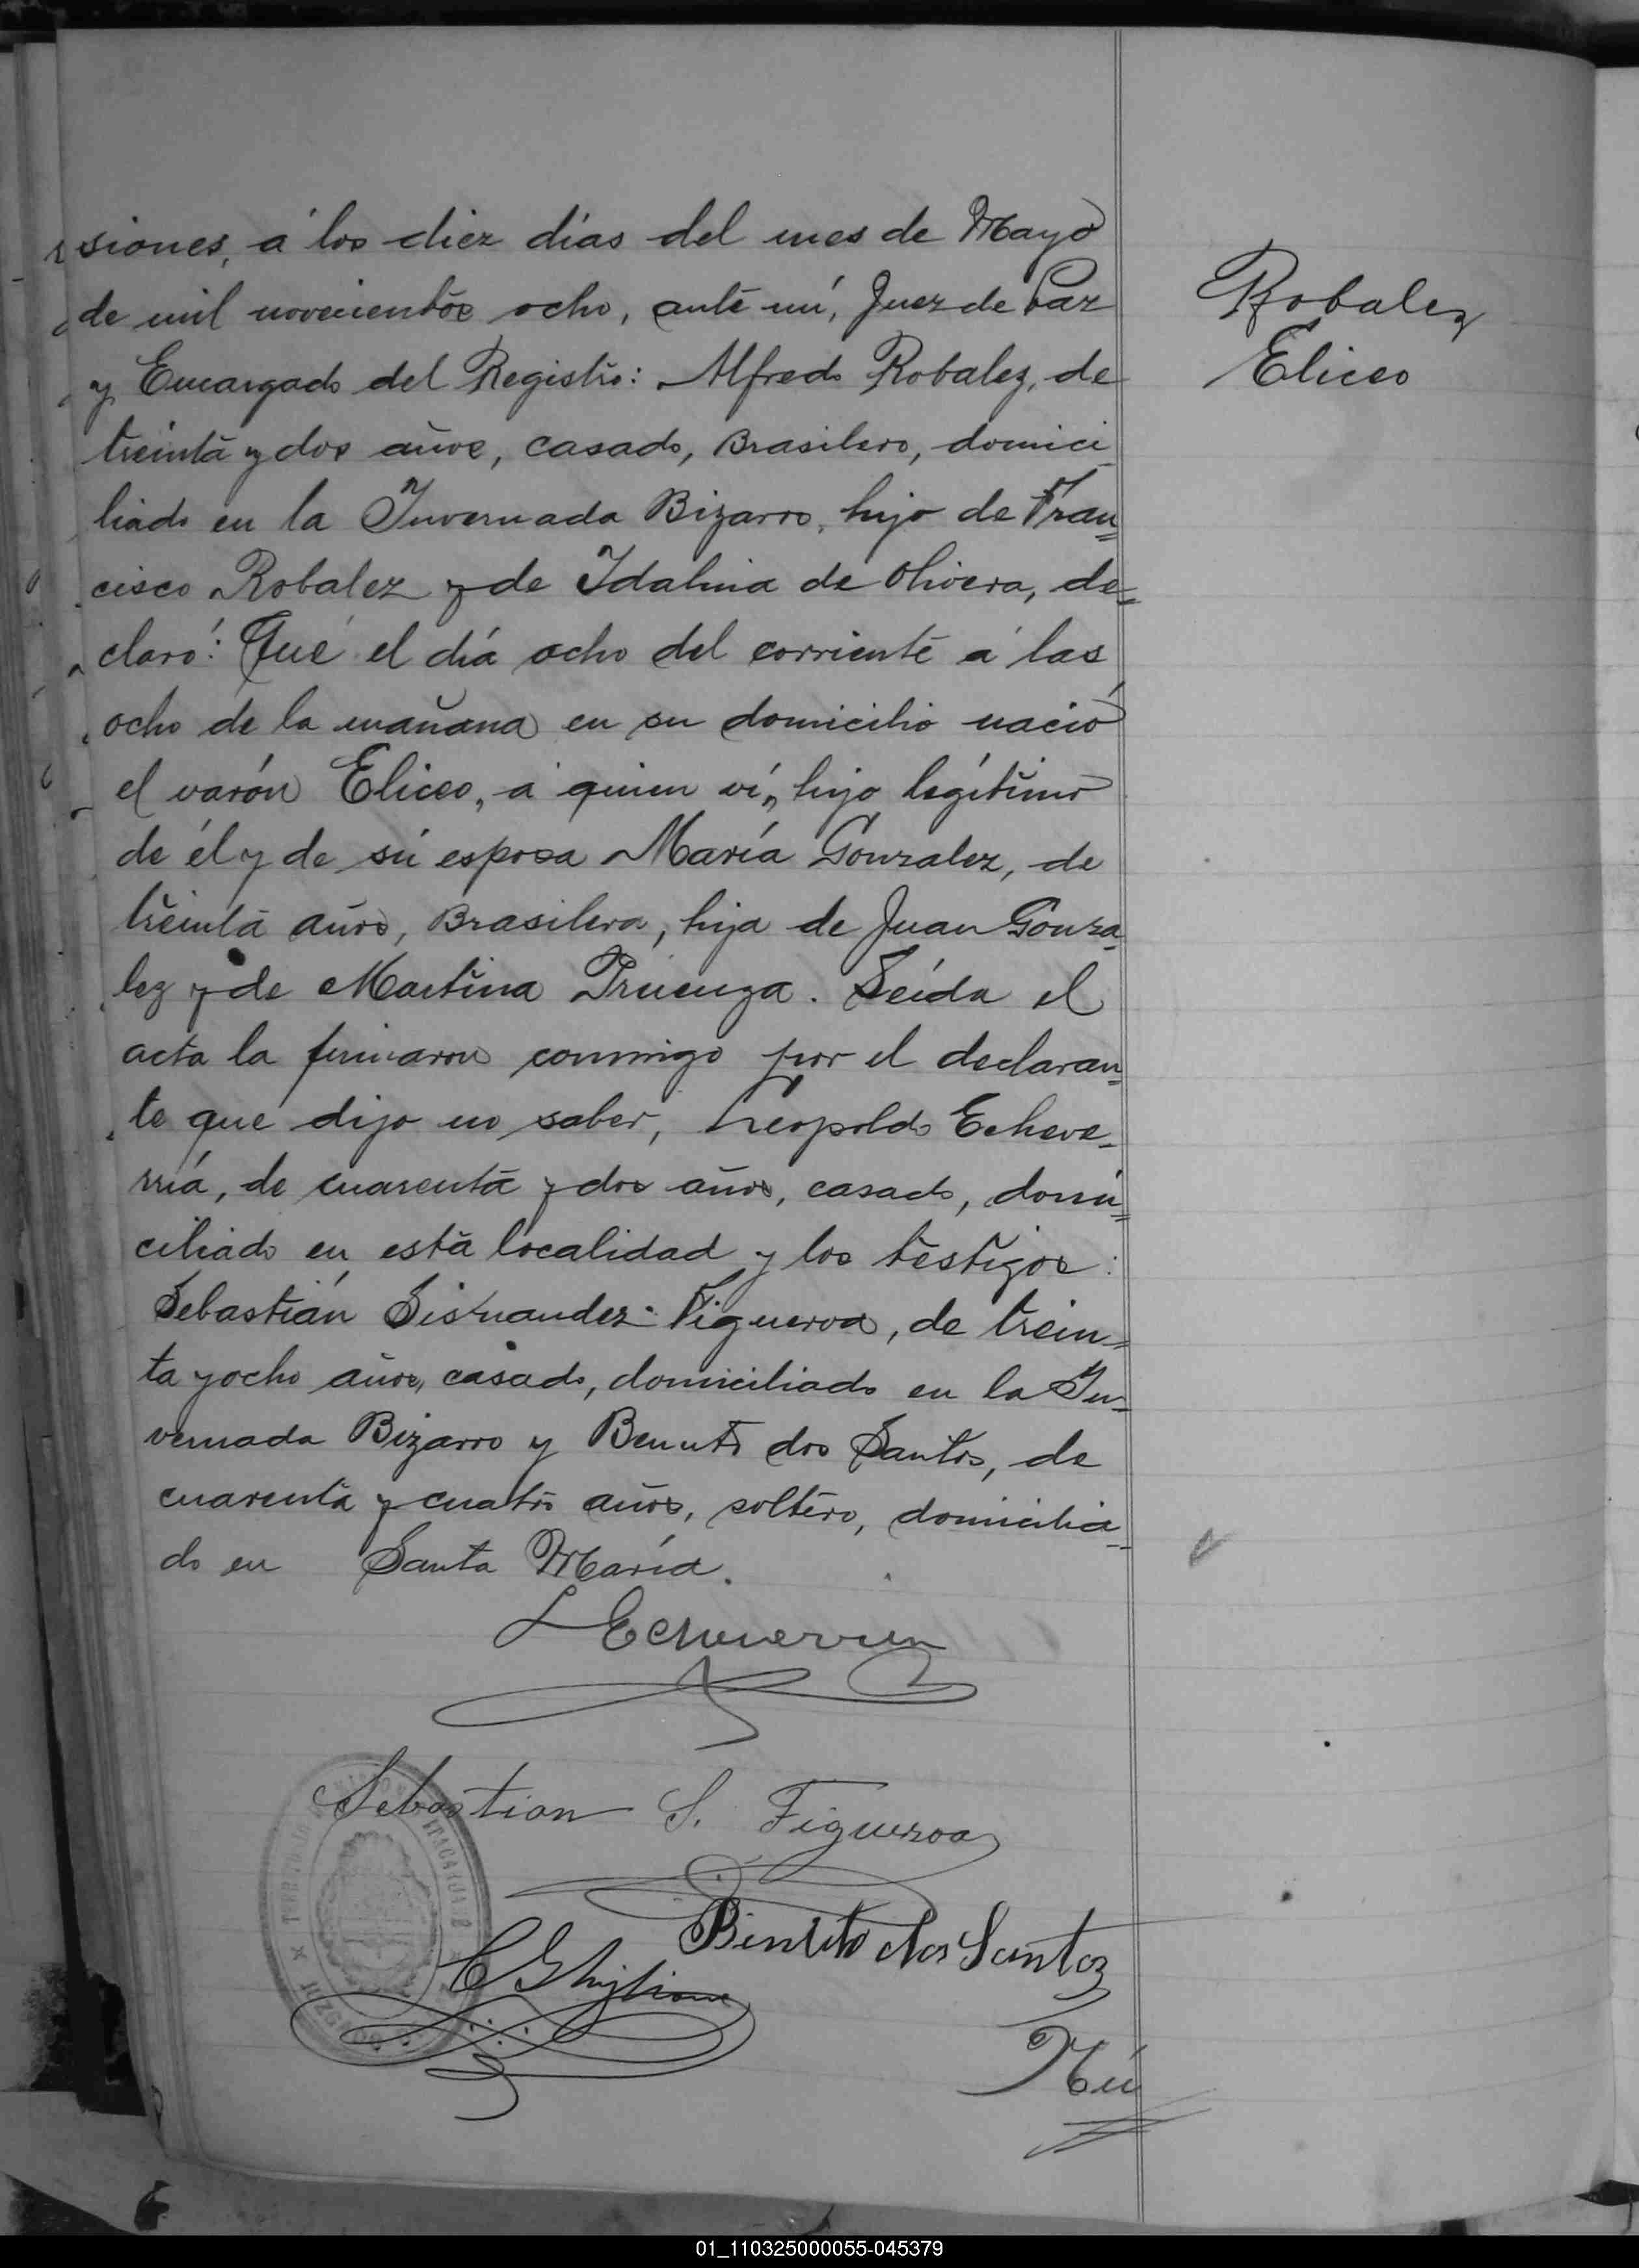 siones, á los diez días del mes de Mayo
de mil novecientos ocho, ante mí, Juez de Paz
y Encargado del Registro: Alfredo Robalez, de
treinta y dos años, casado, Brasilero, domici
liado en la Invernada Bizarro, hijo de Fran=
cisco Robalez y de Idalina de Olivera, de=
claró: Que el día ocho del corriente á las
ocho de la mañana en su domicilio nació
el varón Eliceo, á quien ví, hijo legítimo
de él y de sú esposa María Gonzalez, de
treinta años, Brasilera, hija de Juan Gonza-
lez y de Martina. Leída el
acta la firmaron conmigo por el declaran=
te que dijo no saber, Leopoldo Echeve-
rría, de cuarenta y dos años, casado, domi=
ciliado en esta localidad y los testigos:
Sebastián Sisnandez Figueroa, de trein=
ta y ocho años, casado, domiciliado en la In-
vernada Bizarro y Benito dos Santos, de
cuarenta y cuatro años, soltero, domicilia-
do en Santa María.
Robalez
Eliceo
L Echeverria
Sebastian S. Figueroa
Benito dos Santos
C Ghiglione
JUZGADO
01_110325000055-045379